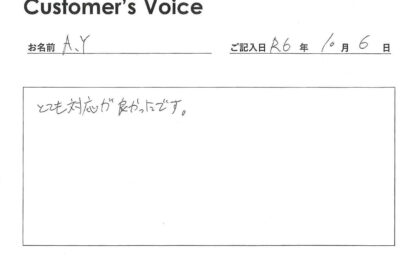 Customer's Voice
お名前 A.Y ご記入日 R6 年 10 月 6 日
とても対応が良かったです。